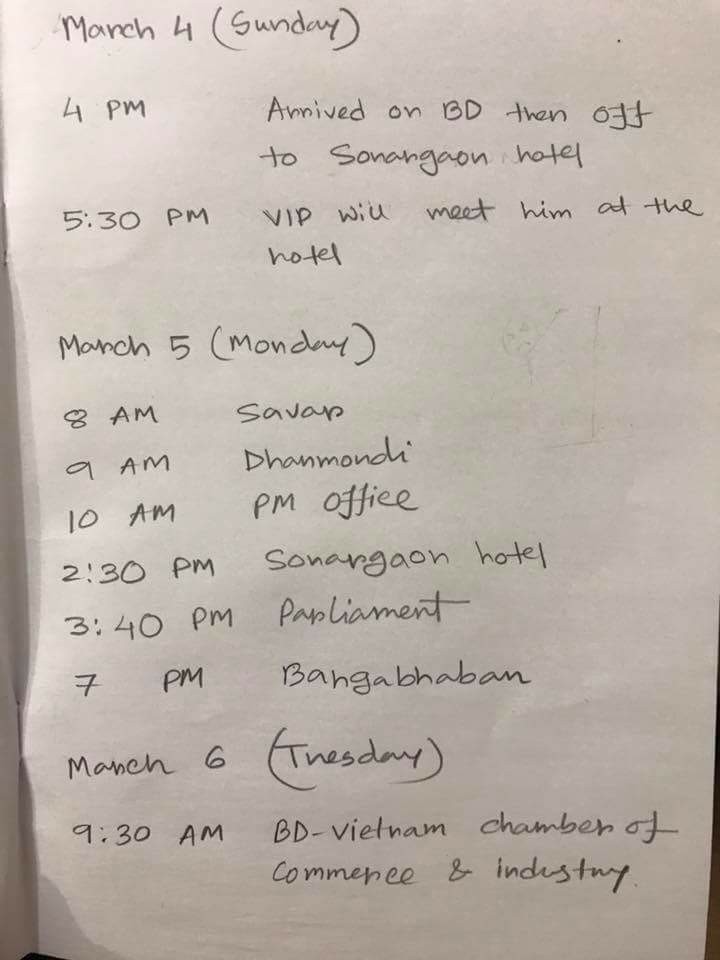 March 4 (Sunday)
4 PM Arrived on BD then off
to Sonargaon hotel
5:30 PM VIP will meet him at the
hotel
March 5 (Monday)
8 AM Savar
9 AM Dhanmondi
10 AM PM office
2:30 PM Sonargaon hotel
3:40 PM Parliament
7 PM Bangabhaban
March 6 (Tuesday)
9:30 AM BD-Vietnam chamber of
Commerce & industry.